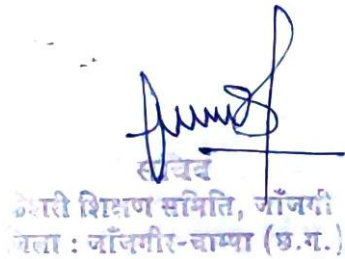 सचिव
शिक्षण समिति, जाँजगी
जिला : जाँजगीर-चाम्पा (छ.ग.)